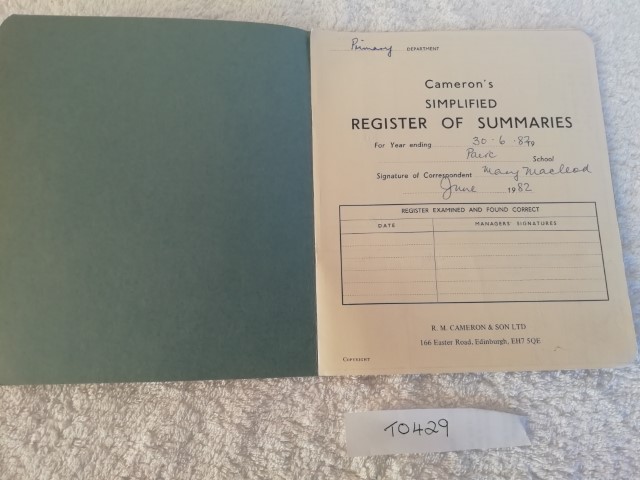 Primary DEPARTMENT
Cameron's
SIMPLIFIED
REGISTER OF SUMMARIES
For Year ending 30·6·82 19
Pairc School
Signature of Correspondent Mary Macleod
June 1982
REGISTER EXAMINED AND FOUND CORRECT
DATE MANAGERS' SIGNATURES
R. M. CAMERON & SON LTD
166 Easter Road, Edinburgh, EH7 5QE
COPYRIGHT
T0429